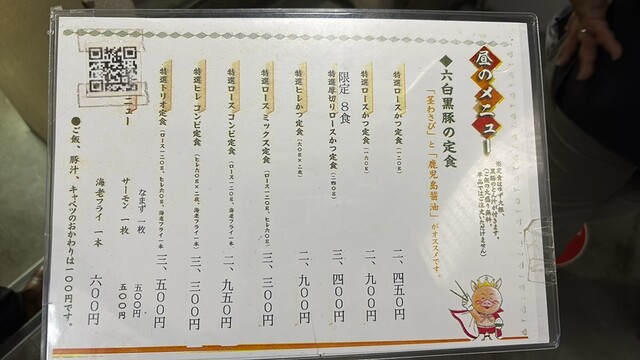 昼のメニュー
※定食はゆず大根、
黒豚のとん汁が付きます。
(ご飯の大盛り無料)
単品ではご注文いただけません
◆六白黒豚の定食
「茎わさび」と「鹿児島醤油」がオススメです。
特選ロースかつ定食(一二〇g) 二、四五〇円
特選ロースかつ定食(一六〇g) 二、九〇〇円
限定8食
特選厚切りロースかつ定食(二四〇g) 三、四〇〇円
特選ヒレかつ定食(六〇g×二枚) 二、九〇〇円
特選ロースミックス定食(ロース一二〇g、ヒレ六〇g) 三、三〇〇円
特選ロースコンビ定食(ロース一二〇g、海老フライ一本) 二、九五〇円
特選ヒレコンビ定食(ヒレ六〇g×二枚、海老フライ一本) 三、三〇〇円
特選トリオ定食(ロース一二〇g、ヒレ六〇g、海老フライ一本) 三、五〇〇円
なまず 一枚 五〇〇円
サーモン 一枚 五〇〇円
海老フライ 一本 六〇〇円
ニュー
●ご飯、豚汁、キャベツのおかわりは一〇〇円です。